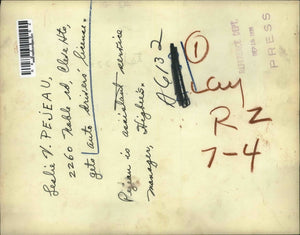 Leslie V. PEJEAU,
2260 Noble rd. Cleve Hts,
gets auto drivers' license.
Pejeau is assistant service
manager, Higbee's.
A6132
1
Lay
R2
7-4
REFERENCE DEPT.
PRESS